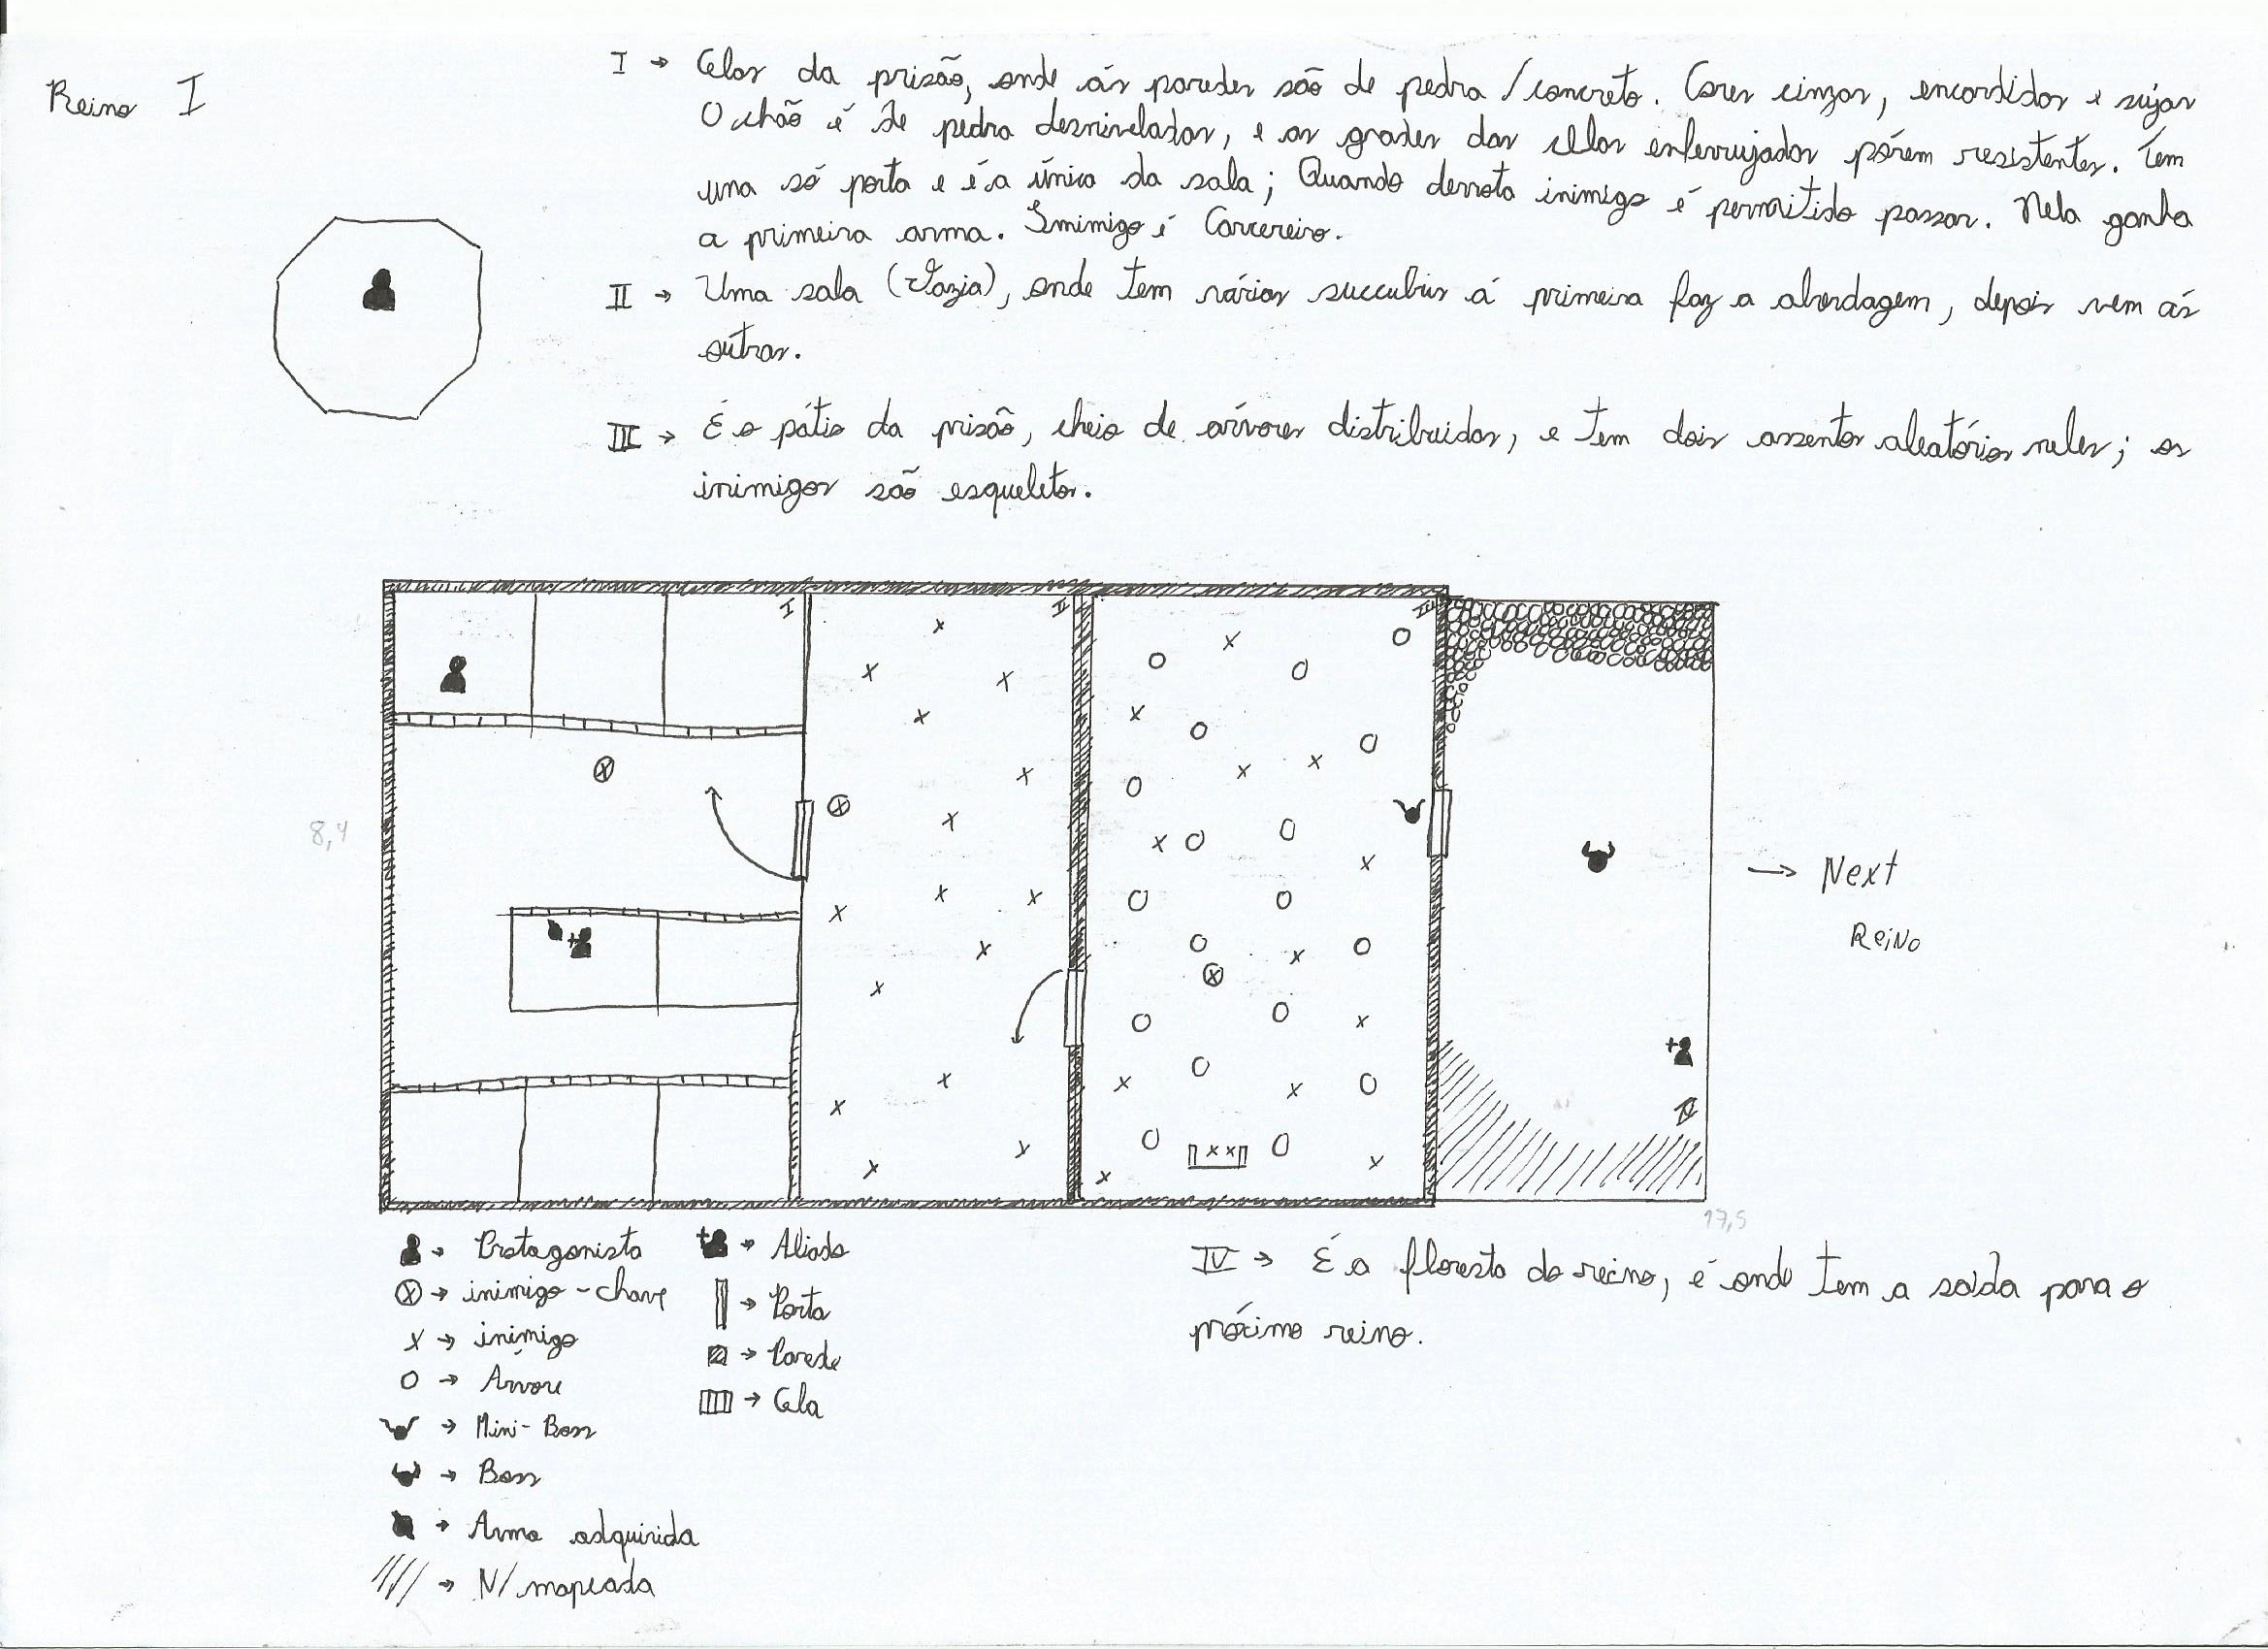 Reino I
I → Celas da prisão, onde ás paredes são de pedra / concreto. Cores cinzas, encardidas e sujas
O chão é de pedra desniveladas, e as grades das cellas enferrujadas pórem resistentes. Tem
uma só porta e é a única da sala; Quando derrota inimigo é permitido passar. Nela ganha
a primeira arma. Inimigo é Carcereiro.
II → Uma sala (Vazia), onde tem várias succubus á primeira faz a abordagem, depois vem ás
outras.
III → É o pátio da prisão, cheio de árvores distribuidas, e tem dois assentos aleatórios neles; os
inimigos são esqueletos.
I
II
III
8,4
→ Next
Reino
IV
17,5
→ Protagonista
→ Aliado
→ inimigo - chave
→ Porta
x → inimigo
→ Parede
O → Árvore
→ Cela
→ Mini-Boss
→ Boss
→ Arma adquirida
→ N/ mapeada
IV → É a floresta do reino, é onde tem a saída para o
próximo reino.